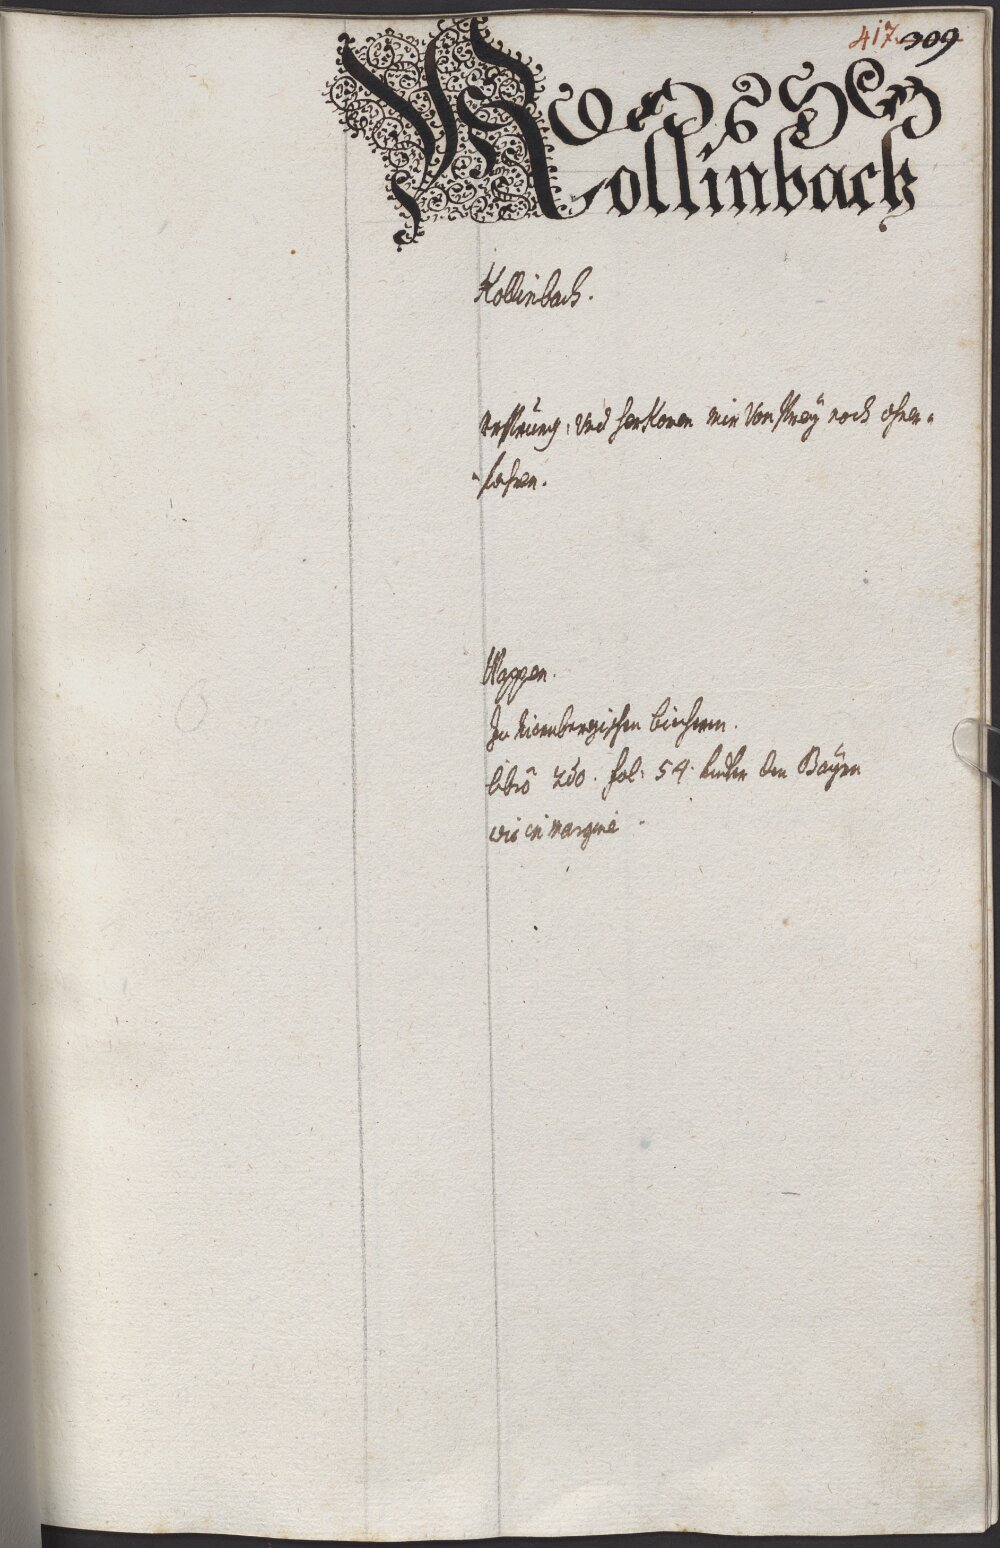 417. 309
Kollinbach
Kollinbach.
Ursprung: Und herKomen mir Von Preÿ noch ohner-
-fahren.
Wappen.
In Nirenbergischen büechern.
librô 2do. fol: 54. hinder den Baÿrn
wie in margine.